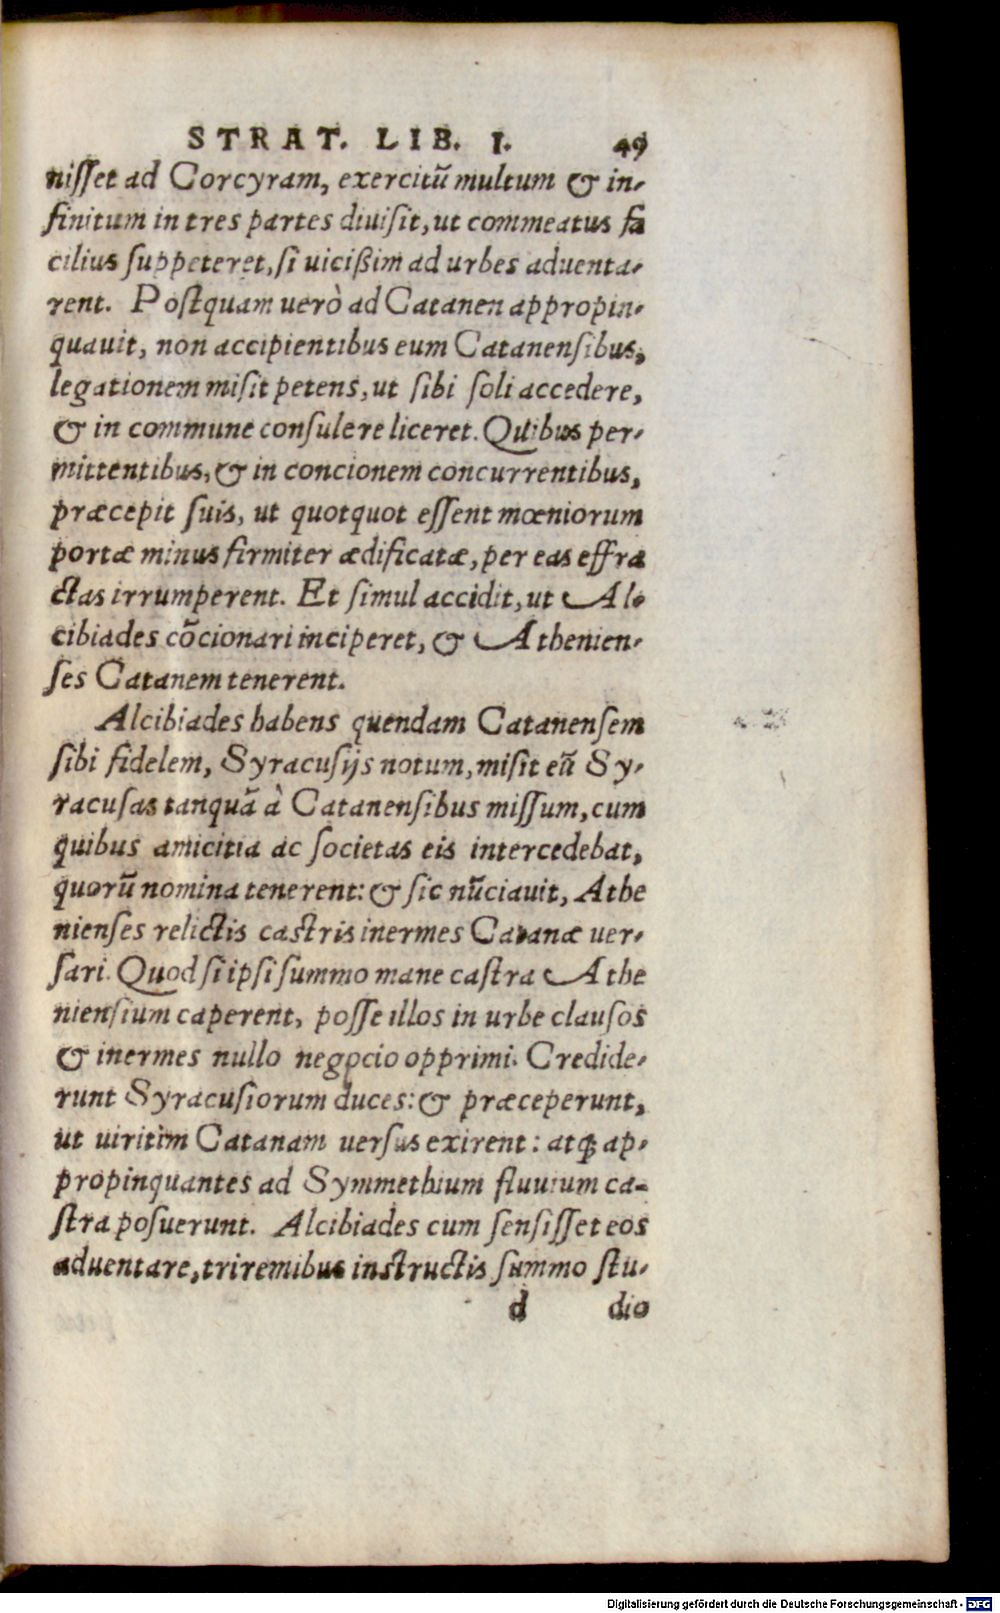 STRAT. LIB. I. 49
niſſet ad Corcyram, exercitū multum & in-
finitum in tres partes diuiſit, ut commeatus fa
cilius ſuppeteret, ſi uicißim ad urbes aduenta-
rent. Poſtquam uerò ad Catanen appropin-
quauit, non accipientibus eum Catanenſibus,
legationem miſit petens, ut ſibi ſoli accedere,
& in commune conſulere liceret. Quibus per-
mittentibus, & in concionem concurrentibus,
præcepit ſuis, ut quotquot eſſent mœniorum
portæ minus firmiter ædificatæ, per eas effra
ctas irrumperent. Et ſimul accidit, ut Al-
cibiades cōcionari inciperet, & Athenien-
ſes Catanem tenerent.
Alcibiades habens quendam Catanenſem
ſibi fidelem, Syracuſijs notum, miſit eū Sy-
racuſas tanquā à Catanenſibus miſſum, cum
quibus amicitia ac ſocietas eis intercedebat,
quorū nomina tenerent: & ſic nūciauit, Athe
nienſes relictis caſtris inermes Catanæ uer-
ſari. Quod ſi ipſi ſummo mane caſtra Athe
nienſium caperent, poſſe illos in urbe clauſos
& inermes nullo negocio opprimi. Credide-
runt Syracuſiorum duces: & præceperunt,
ut uiritim Catanam uerſus exirent: atq; ap-
propinquantes ad Symmethium fluuium ca-
ſtra poſuerunt. Alcibiades cum ſenſiſſet eos
aduentare, triremibus inſtructis ſummo ſtu-
d dio
Digitalisierung gefördert durch die Deutsche Forschungsgemeinschaft - DFG